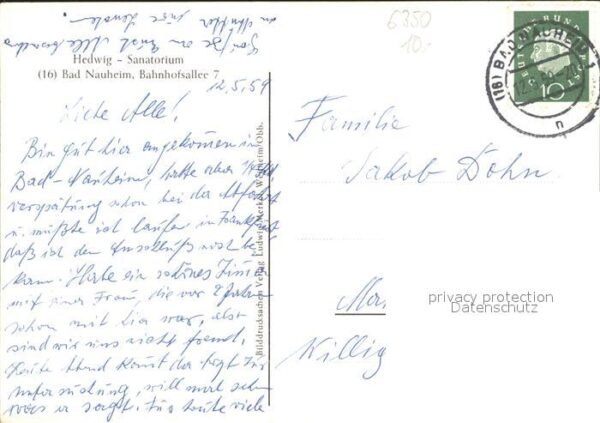 Grüße an Ernst Alle besonders
an Mutter Eure Lenchen
Hedwig - Sanatorium
(16) Bad Nauheim, Bahnhofsallee 7
12.5.59
Liebe Alle!
Bin gut hier angekommen in
Bad-Nauheim, hatte aber
verspätung schon bei der Abfahrt
u. mußte ich laufen in Frankfurt
daß ich den Anschluß noch be
kam. Habe ein schönes Zimmer
mit einer Frau, die vor 2 Jahren
schon mit hier war, also
sind wir uns nicht fremd,
Heute Abend kommt der Arzt zur
Untersuchung, will mal sehn
was er sagt. Für heute viele
Bilddrucksachen Verlag Ludwig Merkel, Weilheim/Obb.
6350
10.-
DEUTSCHE BUNDESPOST
10
(16) BAD NAUHEIM 1
n
Familie
Jakob Dohn
privacy protection
Datenschutz
Killig